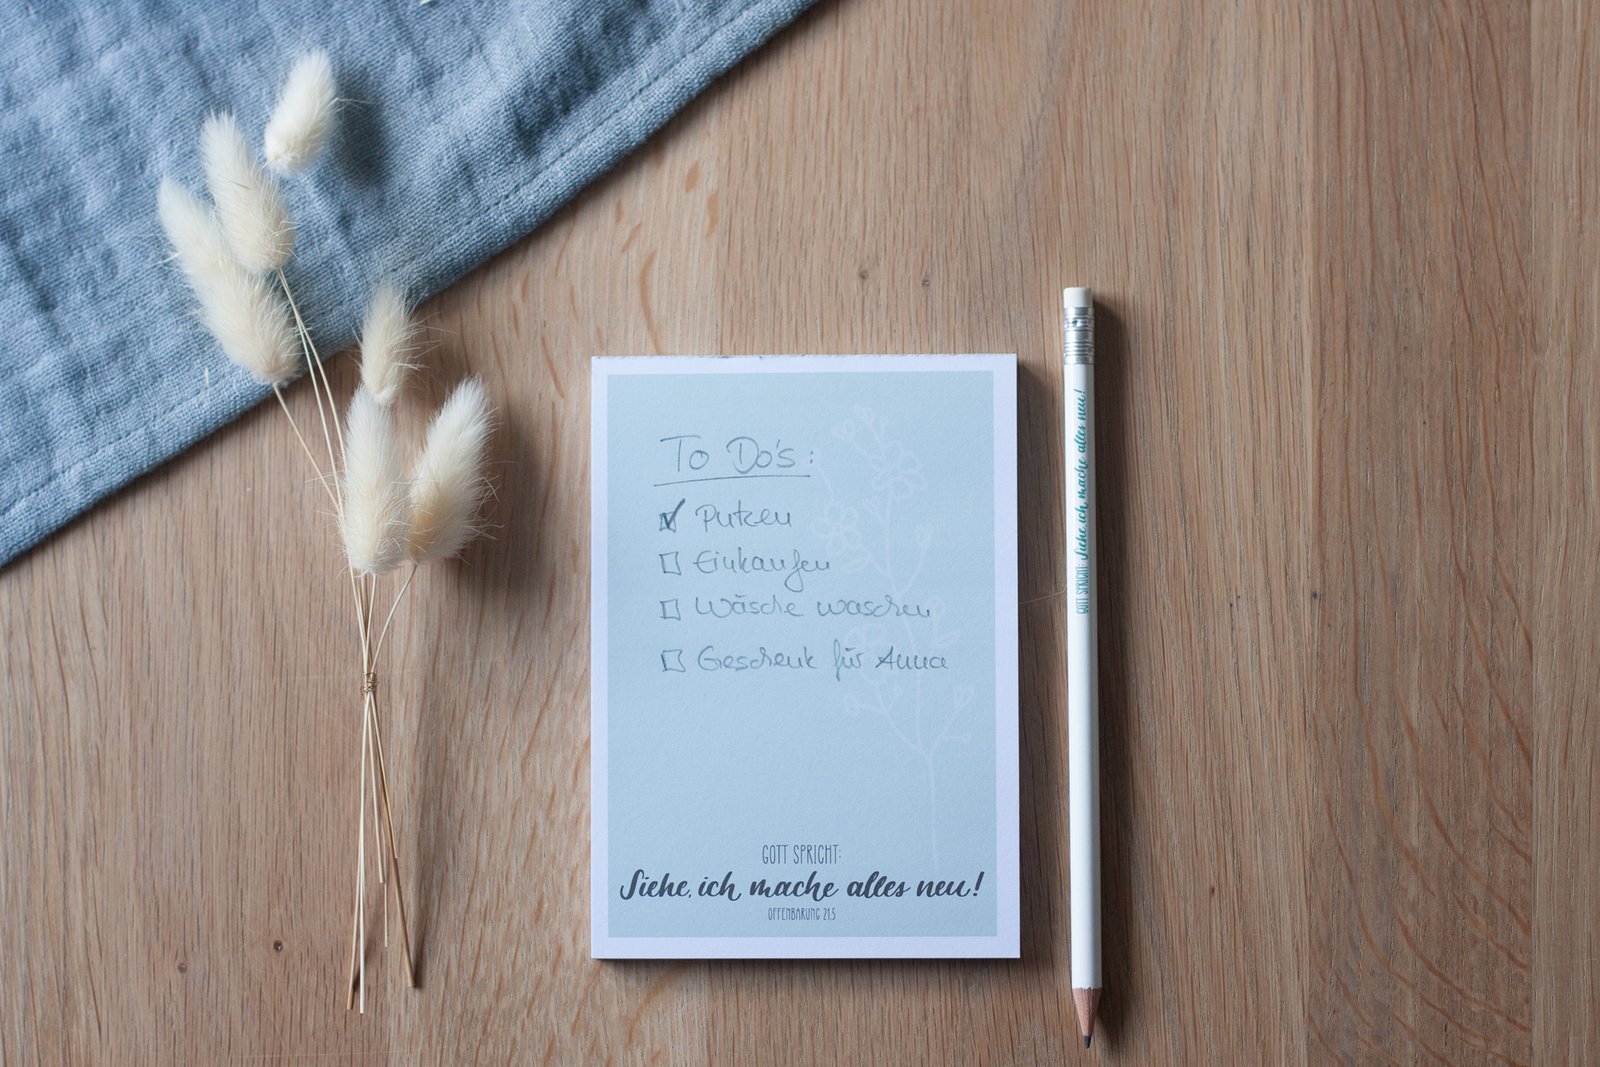 To Do's:
Putzen
Einkaufen
Wäsche waschen
Geschenk für Anna
GOTT SPRICHT:
Siehe, ich mache alles neu!
OFFENBARUNG 21,5
GOTT SPRICHT: Siehe ich mache alles neu!